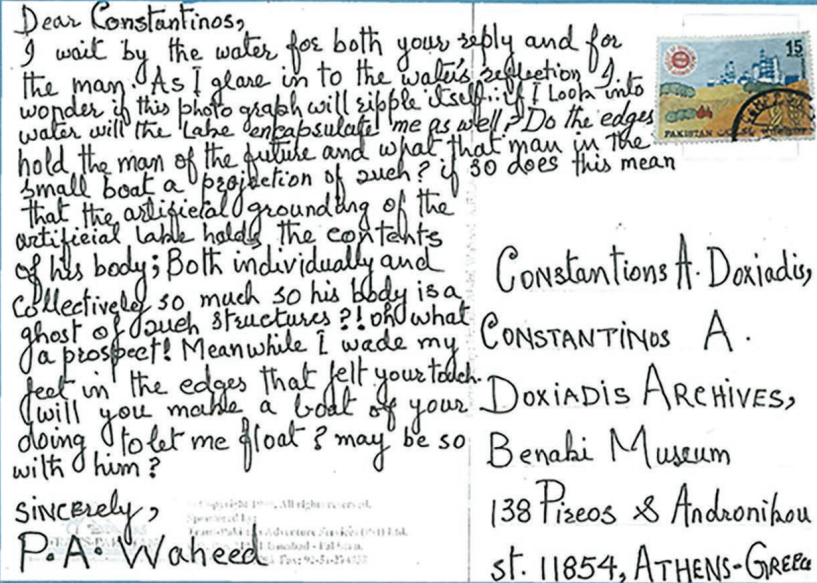 Dear Constantinos,
I wait by the water for both your reply and for
the man. As I glare in to the water's reflection I
wonder if this photo graph will ripple itself... if I Look into
water will the lake encapsulate me as well? Do the edges
hold the man of the future and what that man in the
small boat a projection of such? if so does this mean
that the artificial grounding of the
artificial lake holds the contents
of his body; Both individually and
collectively so much so his body is a
ghost of such structures?! oh what
a prospect! Meanwhile I wade my
feet in the edges that felt your touch.
will you make a boat of your
doing to let me float? may be so
with him?
SINCERELY,
P. A. Waheed
15
PAKISTAN
Constantions A. Doxiadis,
CONSTANTINOS A.
DOXIADIS ARCHIVES,
Benaki Museum
138 Pireos & Andronikou
st. 11854, ATHENS-GREECE
Copyright All rights reserved.
Adventure Services (Pvt) Ltd.